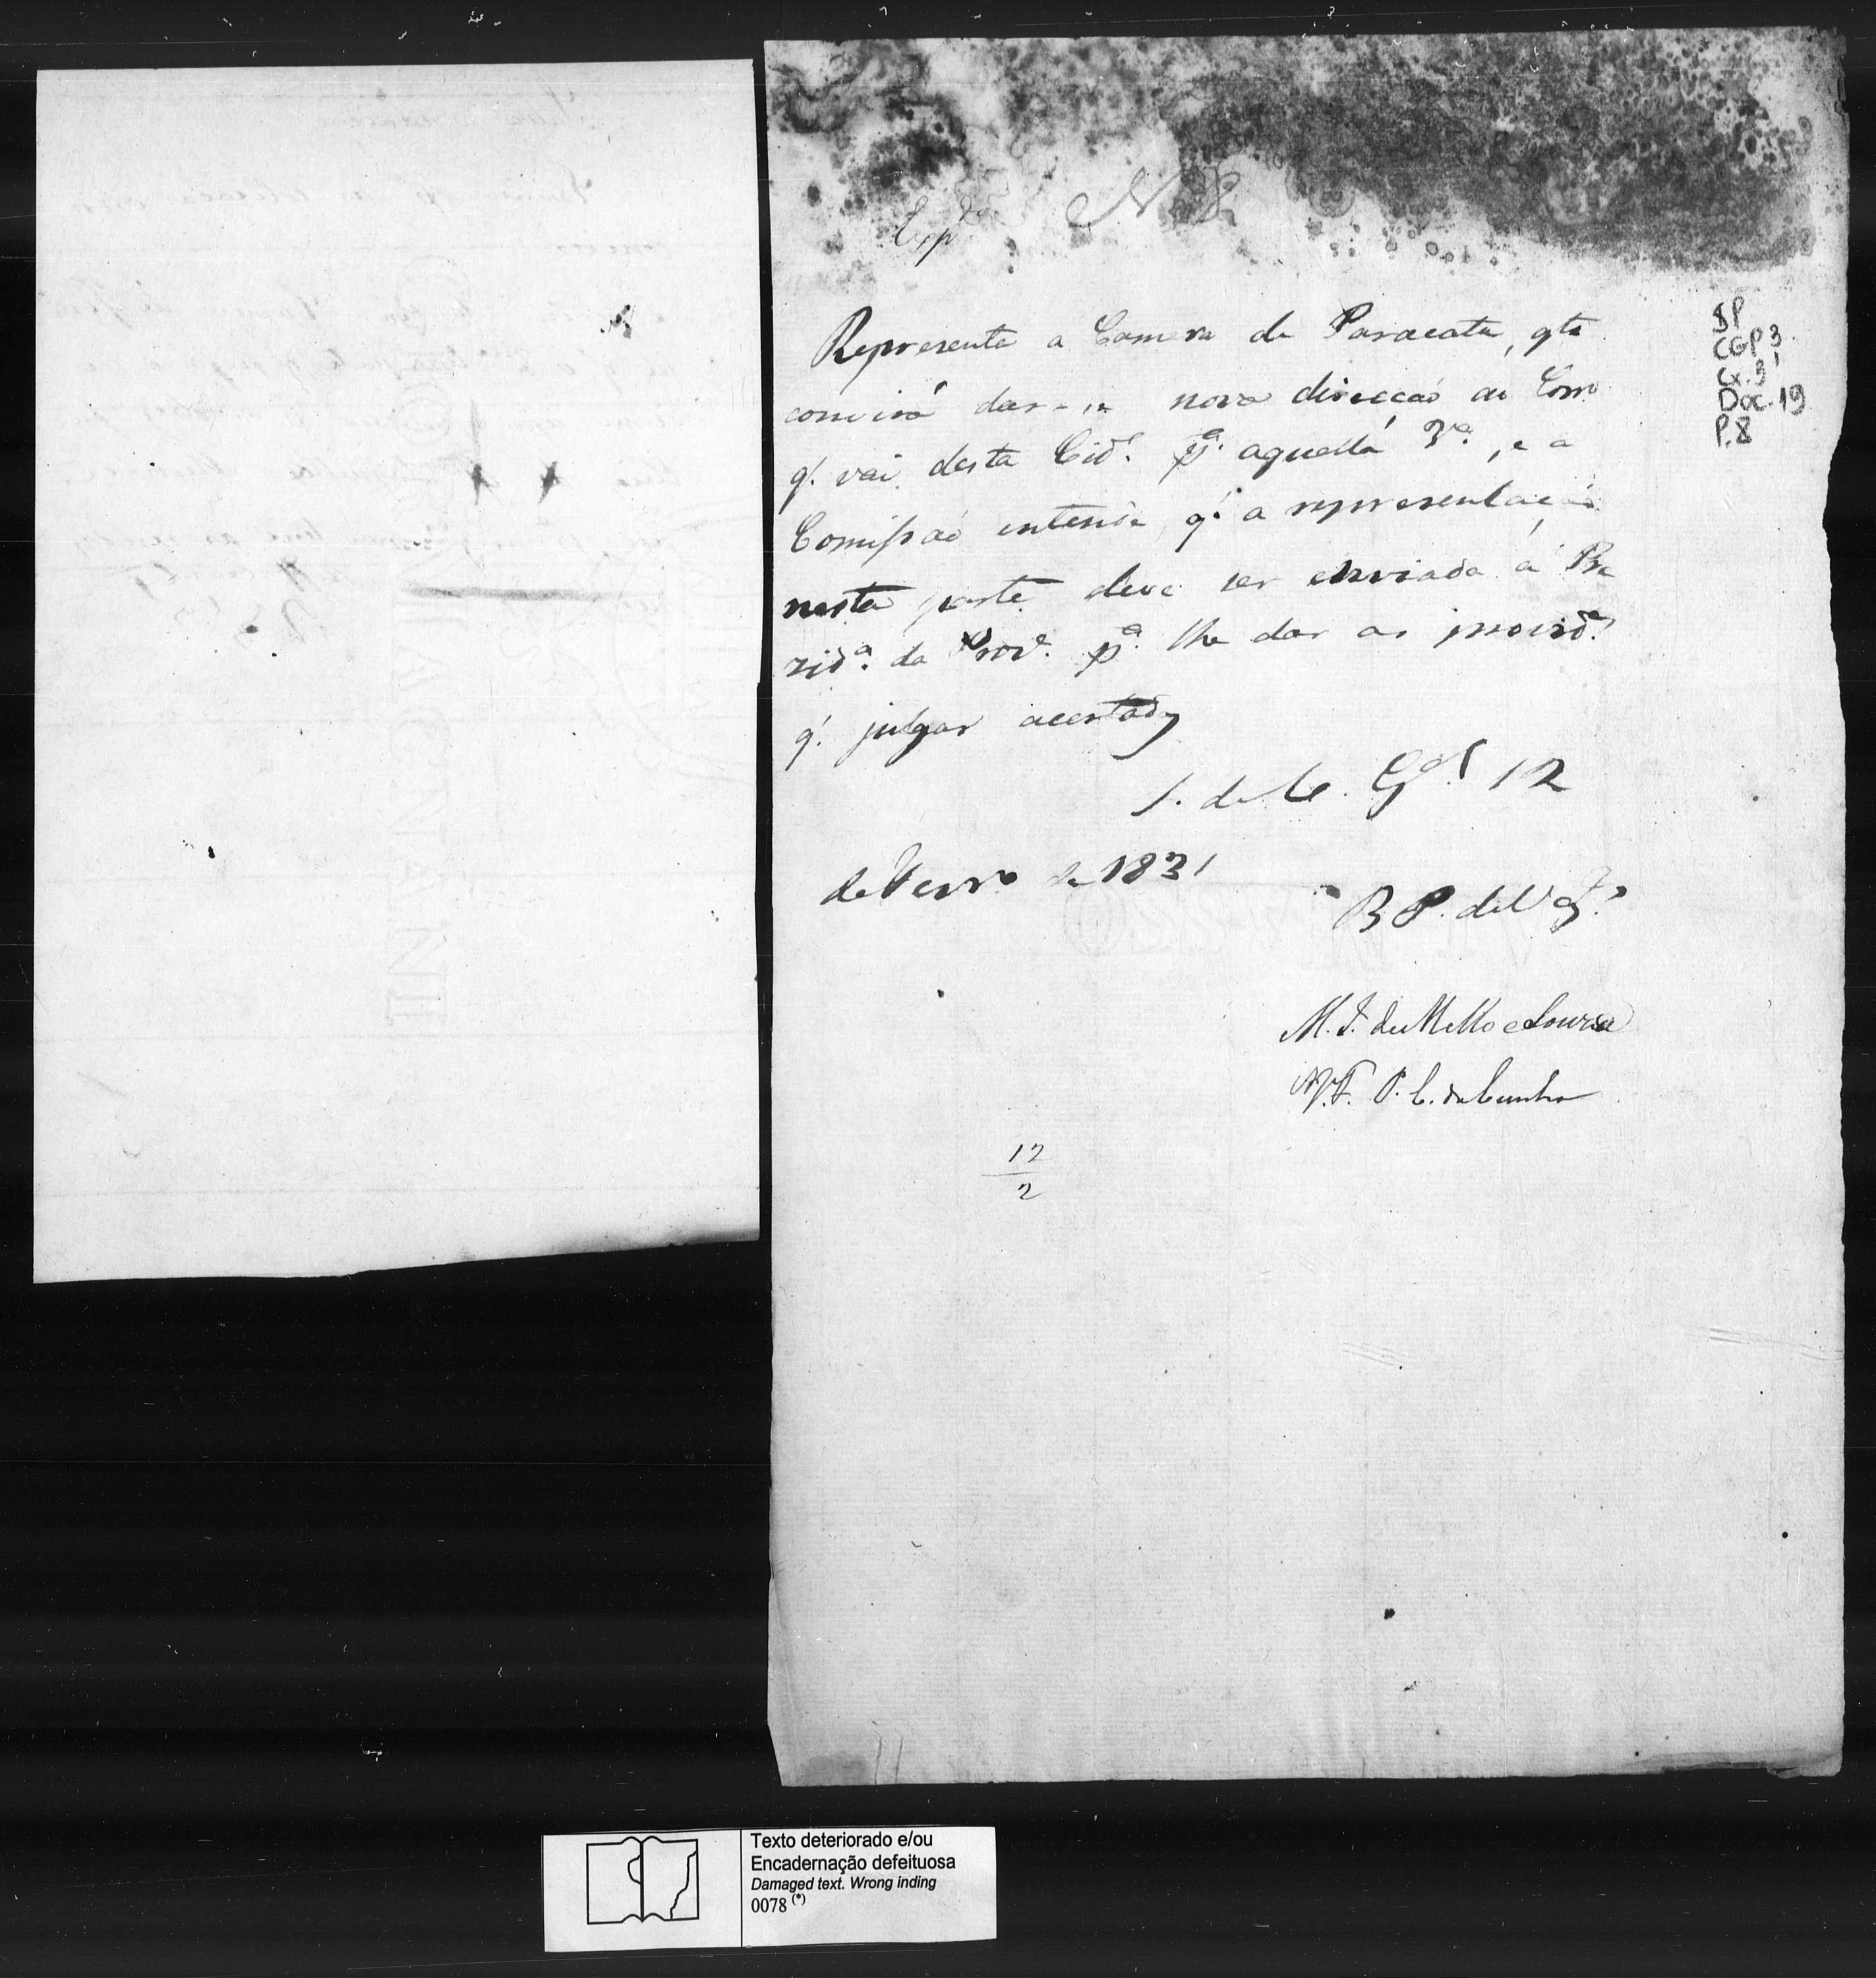 Exp.da
N
Representa a Camera de Paracatu, qto
convirá dar-se nova direcçaõ ao Corro
q.' vai desta Cid.e p.a aquella V.a, e a
Comissaõ entende q.' a representaçaõ
nesta parte deve ser enviada á Pre
zid.a da Prov.a p.a lhe dar as provid.as
q.' julgar acertadas
S. de C. G.al 12
de Fevro de 1831
B P. de V.
M. I. de Mello e Souza
P. C. da Cunha
12
2
CGP 3
Cx. 3
Doc. 19
P. 8
Texto deteriorado e/ou
Encadernação defeituosa
Damaged text. Wrong inding
0078 (*)